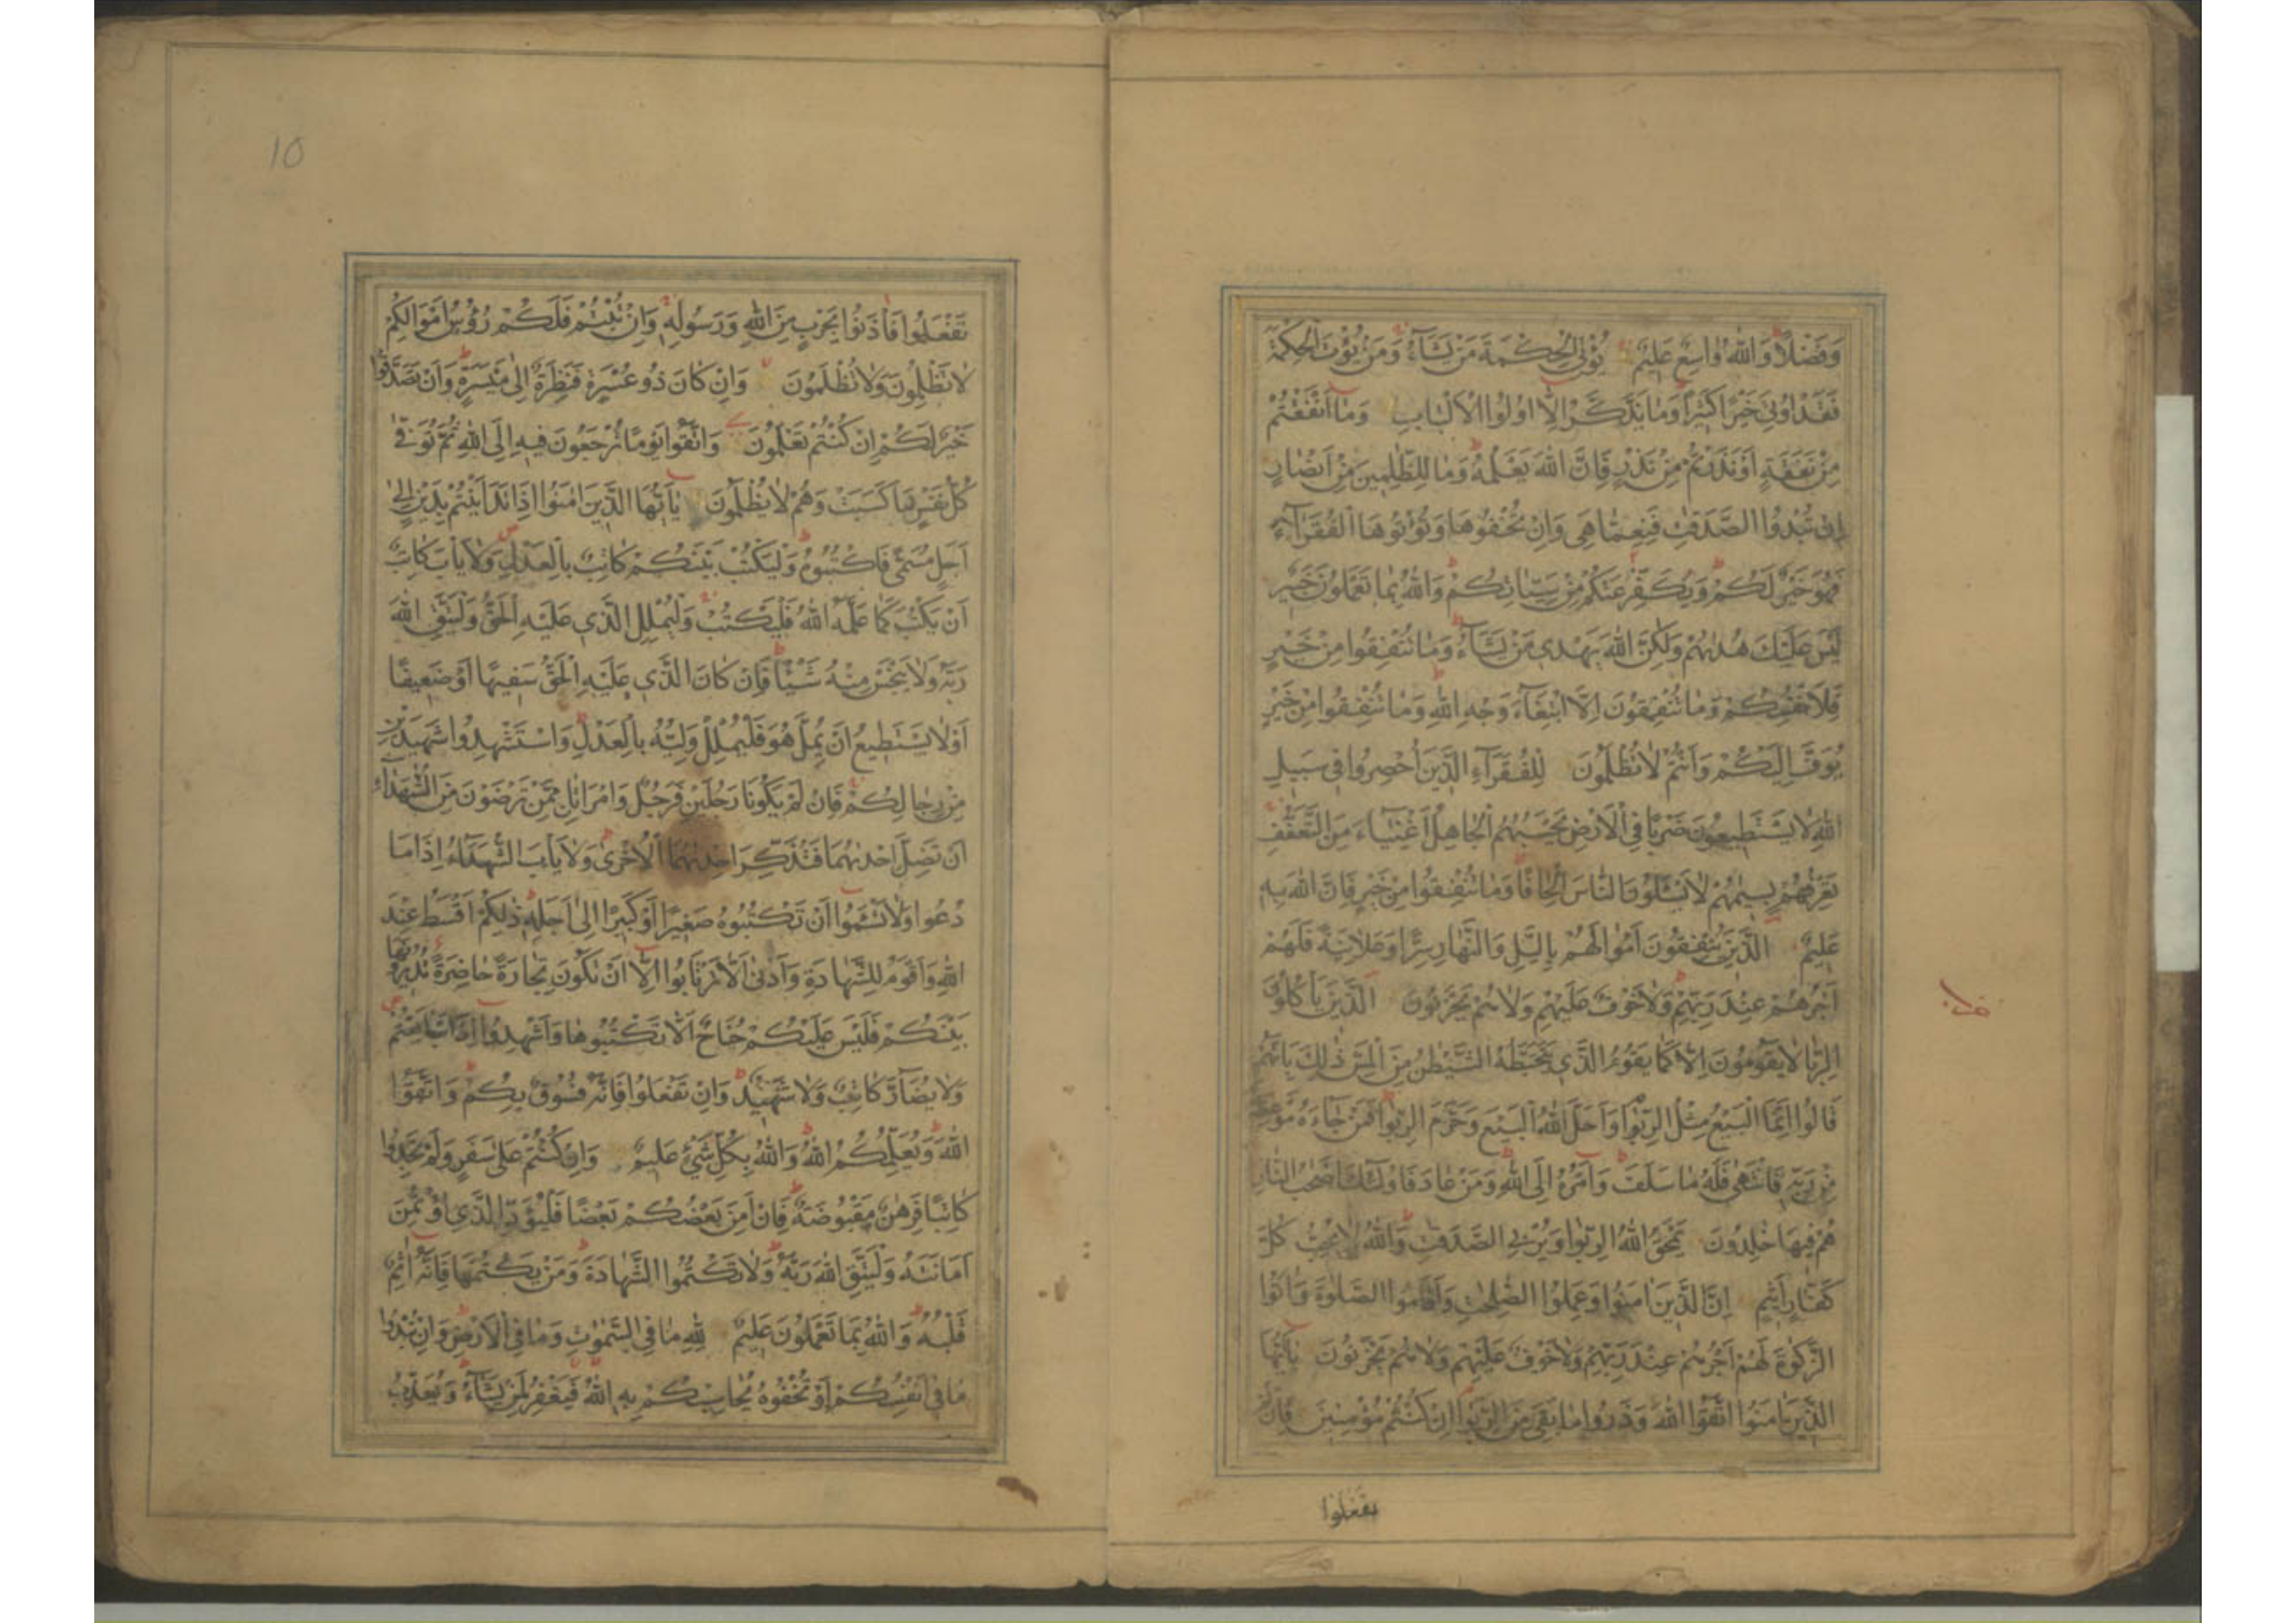 وَفَضْلًا وَاللّٰهُ وَاسِعٌ عَلِيمٌ يُؤْتِي الْحِكْمَةَ مَنْ يَشَآءُ وَمَنْ يُؤْتَ الْحِكْمَةَ
فَقَدْ اُوتِيَ خَيْرًا كَثِيرًا وَمَا يَذَّكَّرُ اِلَّا اُولُوا الْاَلْبَابِ وَمَا اَنْفَقْتُمْ
مِنْ نَفَقَةٍ اَوْ نَذَرْتُمْ مِنْ نَذْرٍ فَاِنَّ اللّٰهَ يَعْلَمُهُ وَمَا لِلظّٰلِمِينَ مِنْ اَنْصَارٍ
اِنْ تُبْدُوا الصَّدَقٰتِ فَنِعِمَّا هِيَ وَاِنْ تُخْفُوهَا وَتُؤْتُوهَا الْفُقَرَآءَ
فَهُوَ خَيْرٌ لَكُمْ وَيُكَفِّرُ عَنْكُمْ مِنْ سَيِّاٰتِكُمْ وَاللّٰهُ بِمَا تَعْمَلُونَ خَبِيرٌ
لَيْسَ عَلَيْكَ هُدٰىهُمْ وَلٰكِنَّ اللّٰهَ يَهْدِي مَنْ يَشَآءُ وَمَا تُنْفِقُوا مِنْ خَيْرٍ
فَلِاَنْفُسِكُمْ وَمَا تُنْفِقُونَ اِلَّا ابْتِغَآءَ وَجْهِ اللّٰهِ وَمَا تُنْفِقُوا مِنْ خَيْرٍ
يُوَفَّ اِلَيْكُمْ وَاَنْتُمْ لَا تُظْلَمُونَ لِلْفُقَرَآءِ الَّذِينَ اُحْصِرُوا فِي سَبِيلِ
اللّٰهِ لَا يَسْتَطِيعُونَ ضَرْبًا فِي الْاَرْضِ يَحْسَبُهُمُ الْجَاهِلُ اَغْنِيَآءَ مِنَ التَّعَفُّفِ
تَعْرِفُهُمْ بِسِيمٰهُمْ لَا يَسْئَلُونَ النَّاسَ اِلْحَافًا وَمَا تُنْفِقُوا مِنْ خَيْرٍ فَاِنَّ اللّٰهَ بِهِ
عَلِيمٌ الَّذِينَ يُنْفِقُونَ اَمْوَالَهُمْ بِالَّيْلِ وَالنَّهَارِ سِرًّا وَعَلَانِيَةً فَلَهُمْ
اَجْرُهُمْ عِنْدَ رَبِّهِمْ وَلَا خَوْفٌ عَلَيْهِمْ وَلَا هُمْ يَحْزَنُونَ الَّذِينَ يَأْكُلُونَ
الرِّبَا لَا يَقُومُونَ اِلَّا كَمَا يَقُومُ الَّذِي يَتَخَبَّطُهُ الشَّيْطٰنُ مِنَ الْمَسِّ ذٰلِكَ بِاَنَّهُمْ
قَالُوا اِنَّمَا الْبَيْعُ مِثْلُ الرِّبٰوا وَاَحَلَّ اللّٰهُ الْبَيْعَ وَحَرَّمَ الرِّبٰوا فَمَنْ جَآءَهُ مَوْعِظَةٌ
مِنْ رَبِّهِ فَانْتَهٰى فَلَهُ مَا سَلَفَ وَاَمْرُهُ اِلَى اللّٰهِ وَمَنْ عَادَ فَاُولٰٓئِكَ اَصْحٰبُ النَّارِ
هُمْ فِيهَا خٰلِدُونَ يَمْحَقُ اللّٰهُ الرِّبٰوا وَيُرْبِي الصَّدَقٰتِ وَاللّٰهُ لَا يُحِبُّ كُلَّ
كَفَّارٍ اَثِيمٍ اِنَّ الَّذِينَ اٰمَنُوا وَعَمِلُوا الصّٰلِحٰتِ وَاَقَامُوا الصَّلٰوةَ وَاٰتَوُا
الزَّكٰوةَ لَهُمْ اَجْرُهُمْ عِنْدَ رَبِّهِمْ وَلَا خَوْفٌ عَلَيْهِمْ وَلَا هُمْ يَحْزَنُونَ يٰٓاَيُّهَا
الَّذِينَ اٰمَنُوا اتَّقُوا اللّٰهَ وَذَرُوا مَا بَقِيَ مِنَ الرِّبٰوا اِنْ كُنْتُمْ مُؤْمِنِينَ فَاِنْ لَمْ
تفعلوا
10
تَفْعَلُوا فَأْذَنُوا بِحَرْبٍ مِنَ اللّٰهِ وَرَسُولِهِ وَاِنْ تُبْتُمْ فَلَكُمْ رُؤُسُ اَمْوَالِكُمْ
لَا تَظْلِمُونَ وَلَا تُظْلَمُونَ وَاِنْ كَانَ ذُو عُسْرَةٍ فَنَظِرَةٌ اِلٰى مَيْسَرَةٍ وَاَنْ تَصَدَّقُوا
خَيْرٌ لَكُمْ اِنْ كُنْتُمْ تَعْلَمُونَ وَاتَّقُوا يَوْمًا تُرْجَعُونَ فِيهِ اِلَى اللّٰهِ ثُمَّ تُوَفّٰى
كُلُّ نَفْسٍ مَا كَسَبَتْ وَهُمْ لَا يُظْلَمُونَ يٰٓاَيُّهَا الَّذِينَ اٰمَنُوا اِذَا تَدَايَنْتُمْ بِدَيْنٍ اِلٰى
اَجَلٍ مُسَمًّى فَاكْتُبُوهُ وَلْيَكْتُبْ بَيْنَكُمْ كَاتِبٌ بِالْعَدْلِ وَلَا يَأْبَ كَاتِبٌ
اَنْ يَكْتُبَ كَمَا عَلَّمَهُ اللّٰهُ فَلْيَكْتُبْ وَلْيُمْلِلِ الَّذِي عَلَيْهِ الْحَقُّ وَلْيَتَّقِ اللّٰهَ
رَبَّهُ وَلَا يَبْخَسْ مِنْهُ شَيْئًا فَاِنْ كَانَ الَّذِي عَلَيْهِ الْحَقُّ سَفِيهًا اَوْ ضَعِيفًا
اَوْ لَا يَسْتَطِيعُ اَنْ يُمِلَّ هُوَ فَلْيُمْلِلْ وَلِيُّهُ بِالْعَدْلِ وَاسْتَشْهِدُوا شَهِيدَيْنِ
مِنْ رِجَالِكُمْ فَاِنْ لَمْ يَكُونَا رَجُلَيْنِ فَرَجُلٌ وَامْرَاَتَانِ مِمَّنْ تَرْضَوْنَ مِنَ الشُّهَدَآءِ
اَنْ تَضِلَّ اِحْدٰىهُمَا فَتُذَكِّرَ اِحْدٰىهُمَا الْاُخْرٰى وَلَا يَأْبَ الشُّهَدَآءُ اِذَا مَا
دُعُوا وَلَا تَسْئَمُوا اَنْ تَكْتُبُوهُ صَغِيرًا اَوْ كَبِيرًا اِلٰى اَجَلِهِ ذٰلِكُمْ اَقْسَطُ عِنْدَ
اللّٰهِ وَاَقْوَمُ لِلشَّهَادَةِ وَاَدْنٰى اَلَّا تَرْتَابُوا اِلَّا اَنْ تَكُونَ تِجَارَةً حَاضِرَةً تُدِيرُونَهَا
بَيْنَكُمْ فَلَيْسَ عَلَيْكُمْ جُنَاحٌ اَلَّا تَكْتُبُوهَا وَاَشْهِدُوا اِذَا تَبَايَعْتُمْ
وَلَا يُضَآرَّ كَاتِبٌ وَلَا شَهِيدٌ وَاِنْ تَفْعَلُوا فَاِنَّهُ فُسُوقٌ بِكُمْ وَاتَّقُوا
اللّٰهَ وَيُعَلِّمُكُمُ اللّٰهُ وَاللّٰهُ بِكُلِّ شَيْءٍ عَلِيمٌ وَاِنْ كُنْتُمْ عَلٰى سَفَرٍ وَلَمْ تَجِدُوا
كَاتِبًا فَرِهٰنٌ مَقْبُوضَةٌ فَاِنْ اَمِنَ بَعْضُكُمْ بَعْضًا فَلْيُؤَدِّ الَّذِي اؤْتُمِنَ
اَمَانَتَهُ وَلْيَتَّقِ اللّٰهَ رَبَّهُ وَلَا تَكْتُمُوا الشَّهَادَةَ وَمَنْ يَكْتُمْهَا فَاِنَّهُ اٰثِمٌ
قَلْبُهُ وَاللّٰهُ بِمَا تَعْمَلُونَ عَلِيمٌ لِلّٰهِ مَا فِي السَّمٰوٰتِ وَمَا فِي الْاَرْضِ وَاِنْ تُبْدُوا
مَا فِي اَنْفُسِكُمْ اَوْ تُخْفُوهُ يُحَاسِبْكُمْ بِهِ اللّٰهُ فَيَغْفِرُ لِمَنْ يَشَآءُ وَيُعَذِّبُ